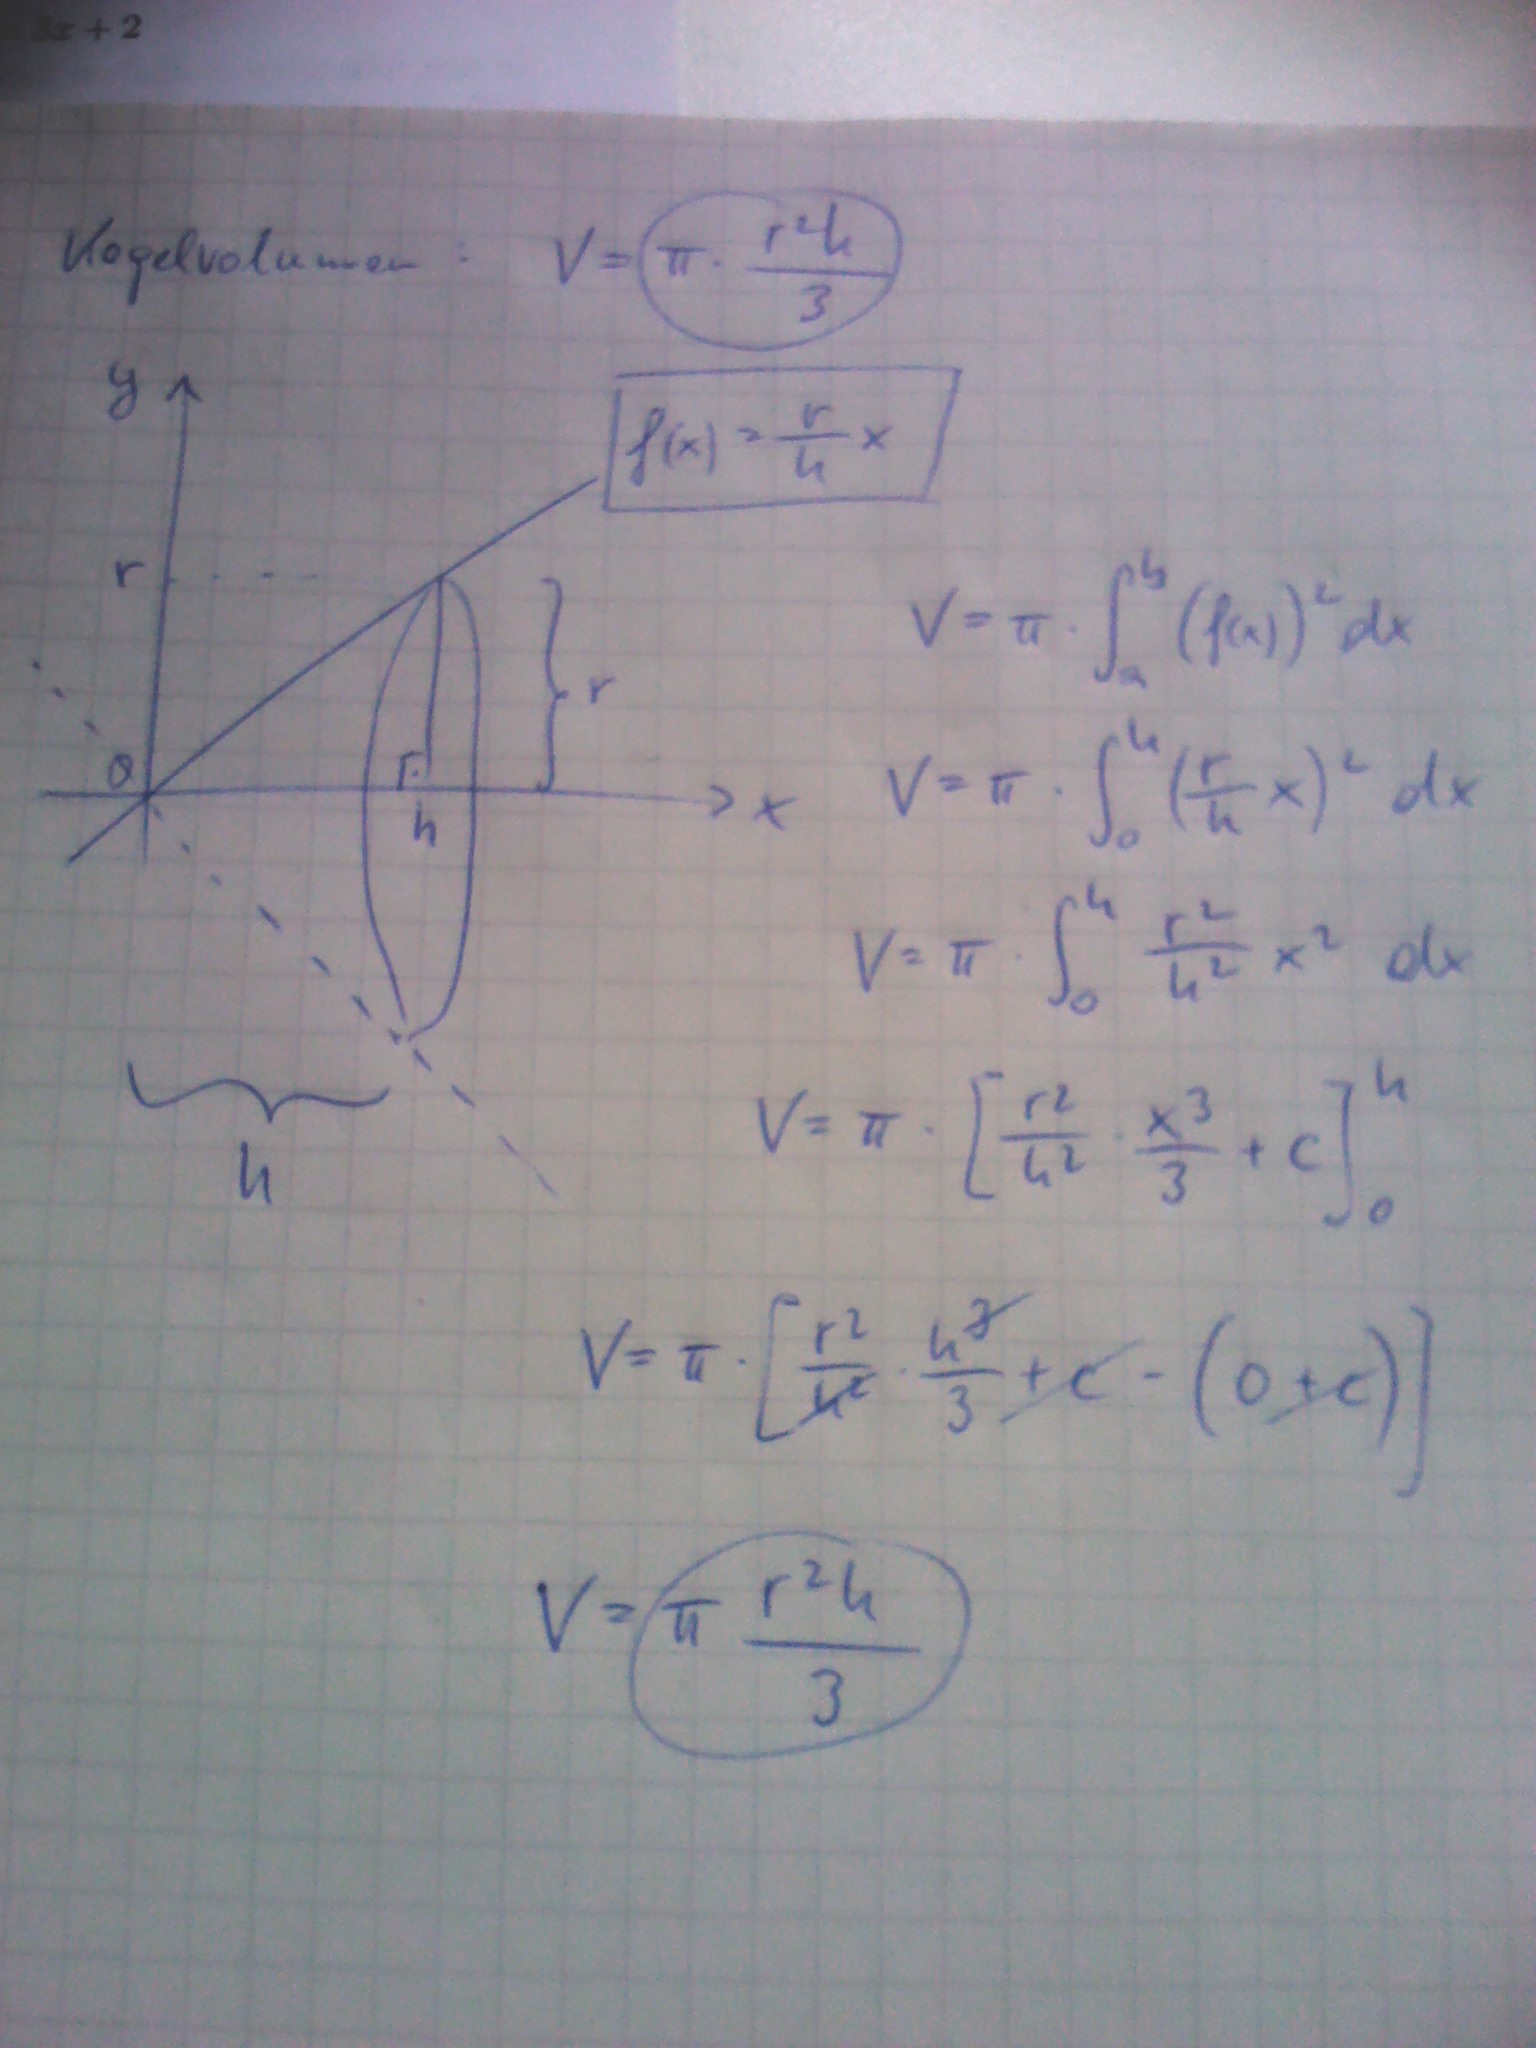 x + 2
Kegelvolumen : V = π · r²h / 3
y
f(x) = r/h x
r
r
0
h
x
h
V = π · ∫ₐᵇ (f(x))² dx
V = π · ∫₀ʰ (r/h x)² dx
V = π · ∫₀ʰ r²/h² x² dx
V = π · [r²/h² · x³/3 + c]₀ʰ
V = π · [r²/h² · h³/3 + c - (0 + c)]
V = π r²h / 3